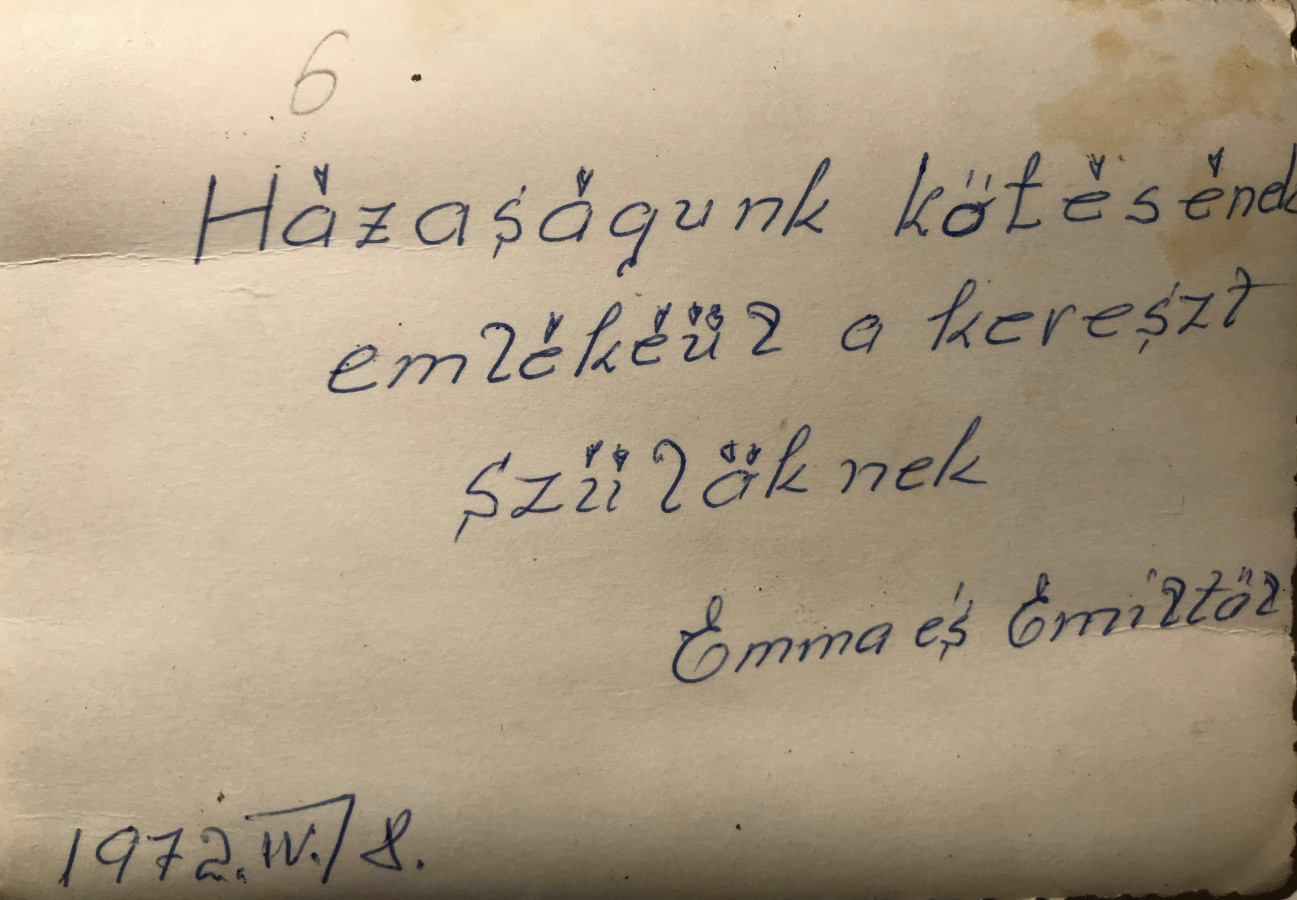 6
Házaságunk kötésének
emlékéül a kereszt
szüläknek
Emma és Emiltöl
1972.IV./8.